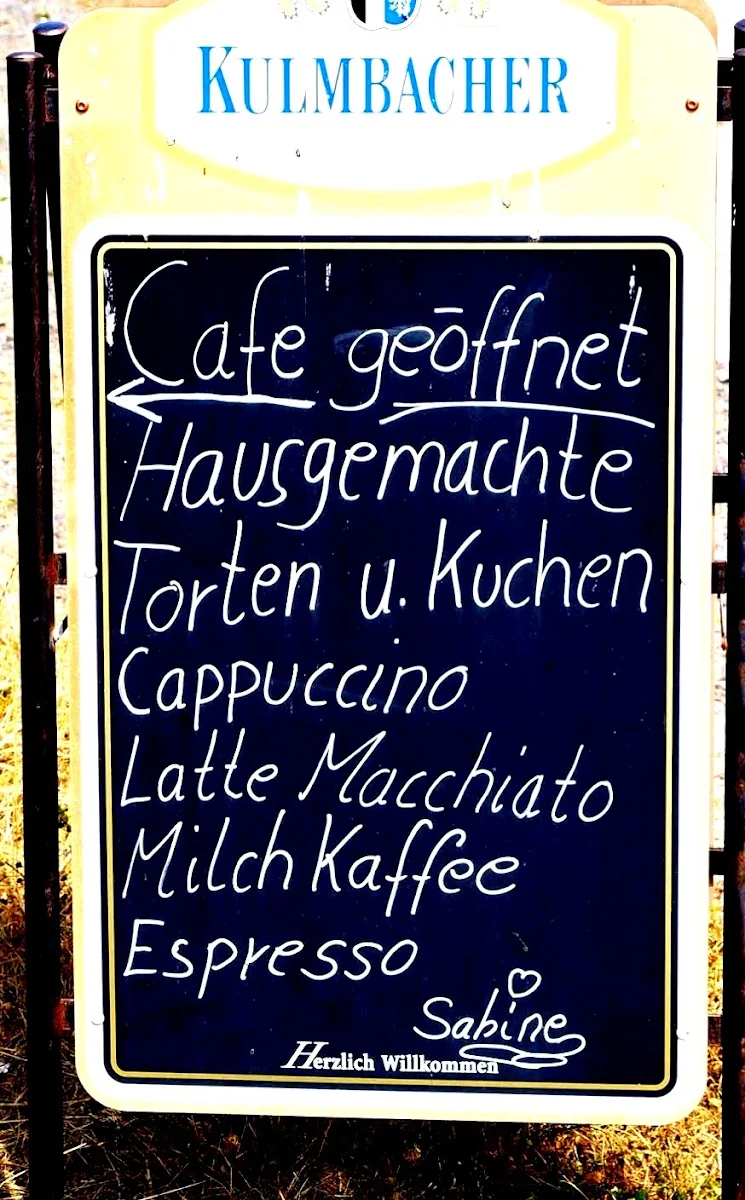 KULMBACHER
Cafe geöffnet
Hausgemachte
Torten u. Kuchen
Cappuccino
Latte Macchiato
Milch Kaffee
Espresso
Sabine
Herzlich Willkommen